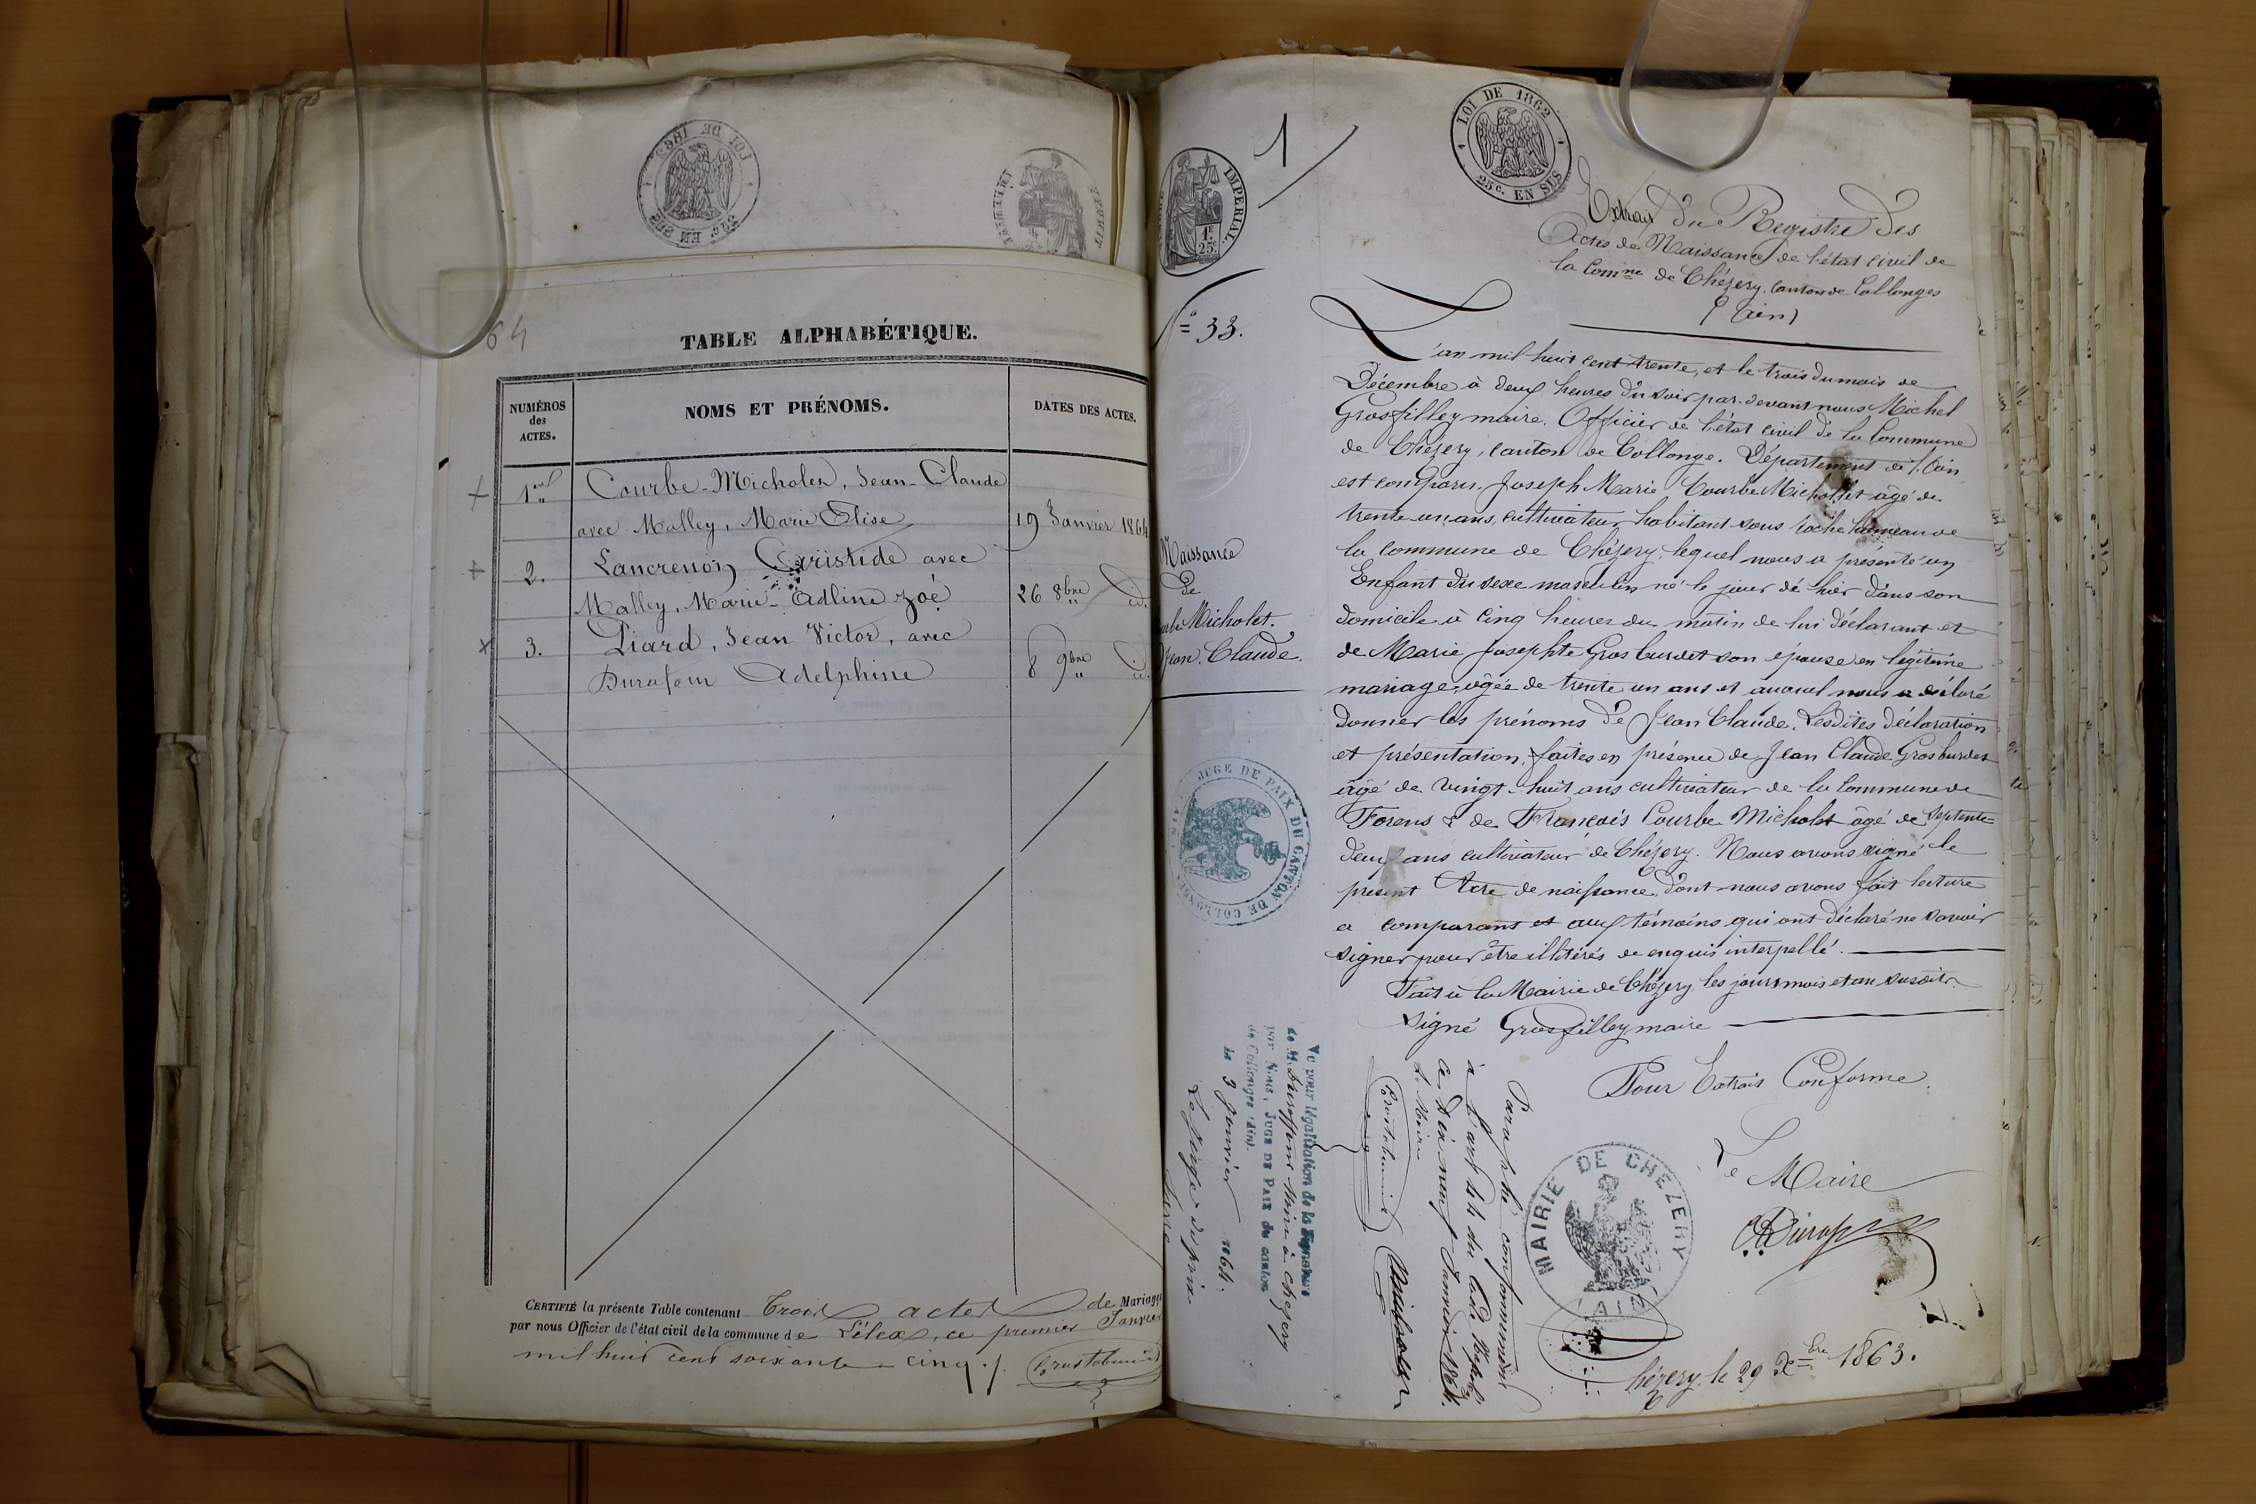 64
TABLE ALPHABÉTIQUE.
NUMÉROS
des
ACTES.
NOMS ET PRÉNOMS.
DATES DES ACTES.
1er
Courbe-Micholet, Jean-Claude
avec Malley, Marie Elise
19 Janvier 1864
2.
Lancrenon Aristide avec
Malley, Marie-Adline Zoé
26 8bre id.
3.
Piard, Jean Victor, avec
Durafour Adelphine
8 9bre id.
CERTIFIÉ la présente Table contenant Trois actes de Mariage
par nous Officier de l'état civil de la commune de Lélex, ce premier Janvier
mil huit cent soixante-cinq ./.
1
LOI DE 1862
25c. EN SUS
IMPERIAL.
1F
25c
Extrait du Registre des
Actes de Naissance de l'état civil de
la Comne de Chézery, canton de Collonges
(Ain)
No 33.
Naissance
de
Micholet.
Jean Claude.
L'an mil huit cent trente, et le trois du mois de
Décembre à deux heures du soir par-devant nous Michel
Grosfilley maire, Officier de l'état civil de la Commune
de Chézery, canton de Collonge. Département de l'Ain
est comparu Joseph Marie Courbe Micholet âgé de
trente un ans, cultivateur habitant sous roche hameau de
la commune de Chézery, lequel nous a présenté un
Enfant du sexe masculin né le jour de hier dans son
domicile à cinq heures du matin de lui déclarant et
de Marie Josephte Gros burdet son épouse en légitime
mariage, âgée de trente un ans et auquel nous a déclaré
donner les prénoms de Jean Claude. Lesdites déclaration
et présentation, faites en présence de Jean Claude Gros burdet
âgé de vingt-huit ans cultivateur de la Commune de
Forens & de François Courbe Micholet âgé de septente-
deux ans cultivateur de Chézery. Nous avons signé le
présent Acte de naissance, dont nous avons fait lecture
a comparant et aux témoins qui ont déclaré ne savoir
signer pour être illitérés de enquis interpellé.
Fait à la Mairie de Chézery les jours mois et an susdits
signé Grosfilley maire
Pour Extrait Conforme
Le Maire
Chézery, le 29 Xbre 1863.
MAIRIE DE CHEZERY
(AIN)
JUGE DE PAIX DU CANTON DE COLLONGES
Vu pour légalisation de la Signature
de M. Durafour Maire à Chézery
par Nous, JUGE DE PAIX du canton
de Collonges (Ain).
Le 3 Janvier 1864.
Le Juge de paix
Paraphé conformément
à l'art. 44 du Code Napoléon
ce dix neuf Janvier 1864.
Le Maire